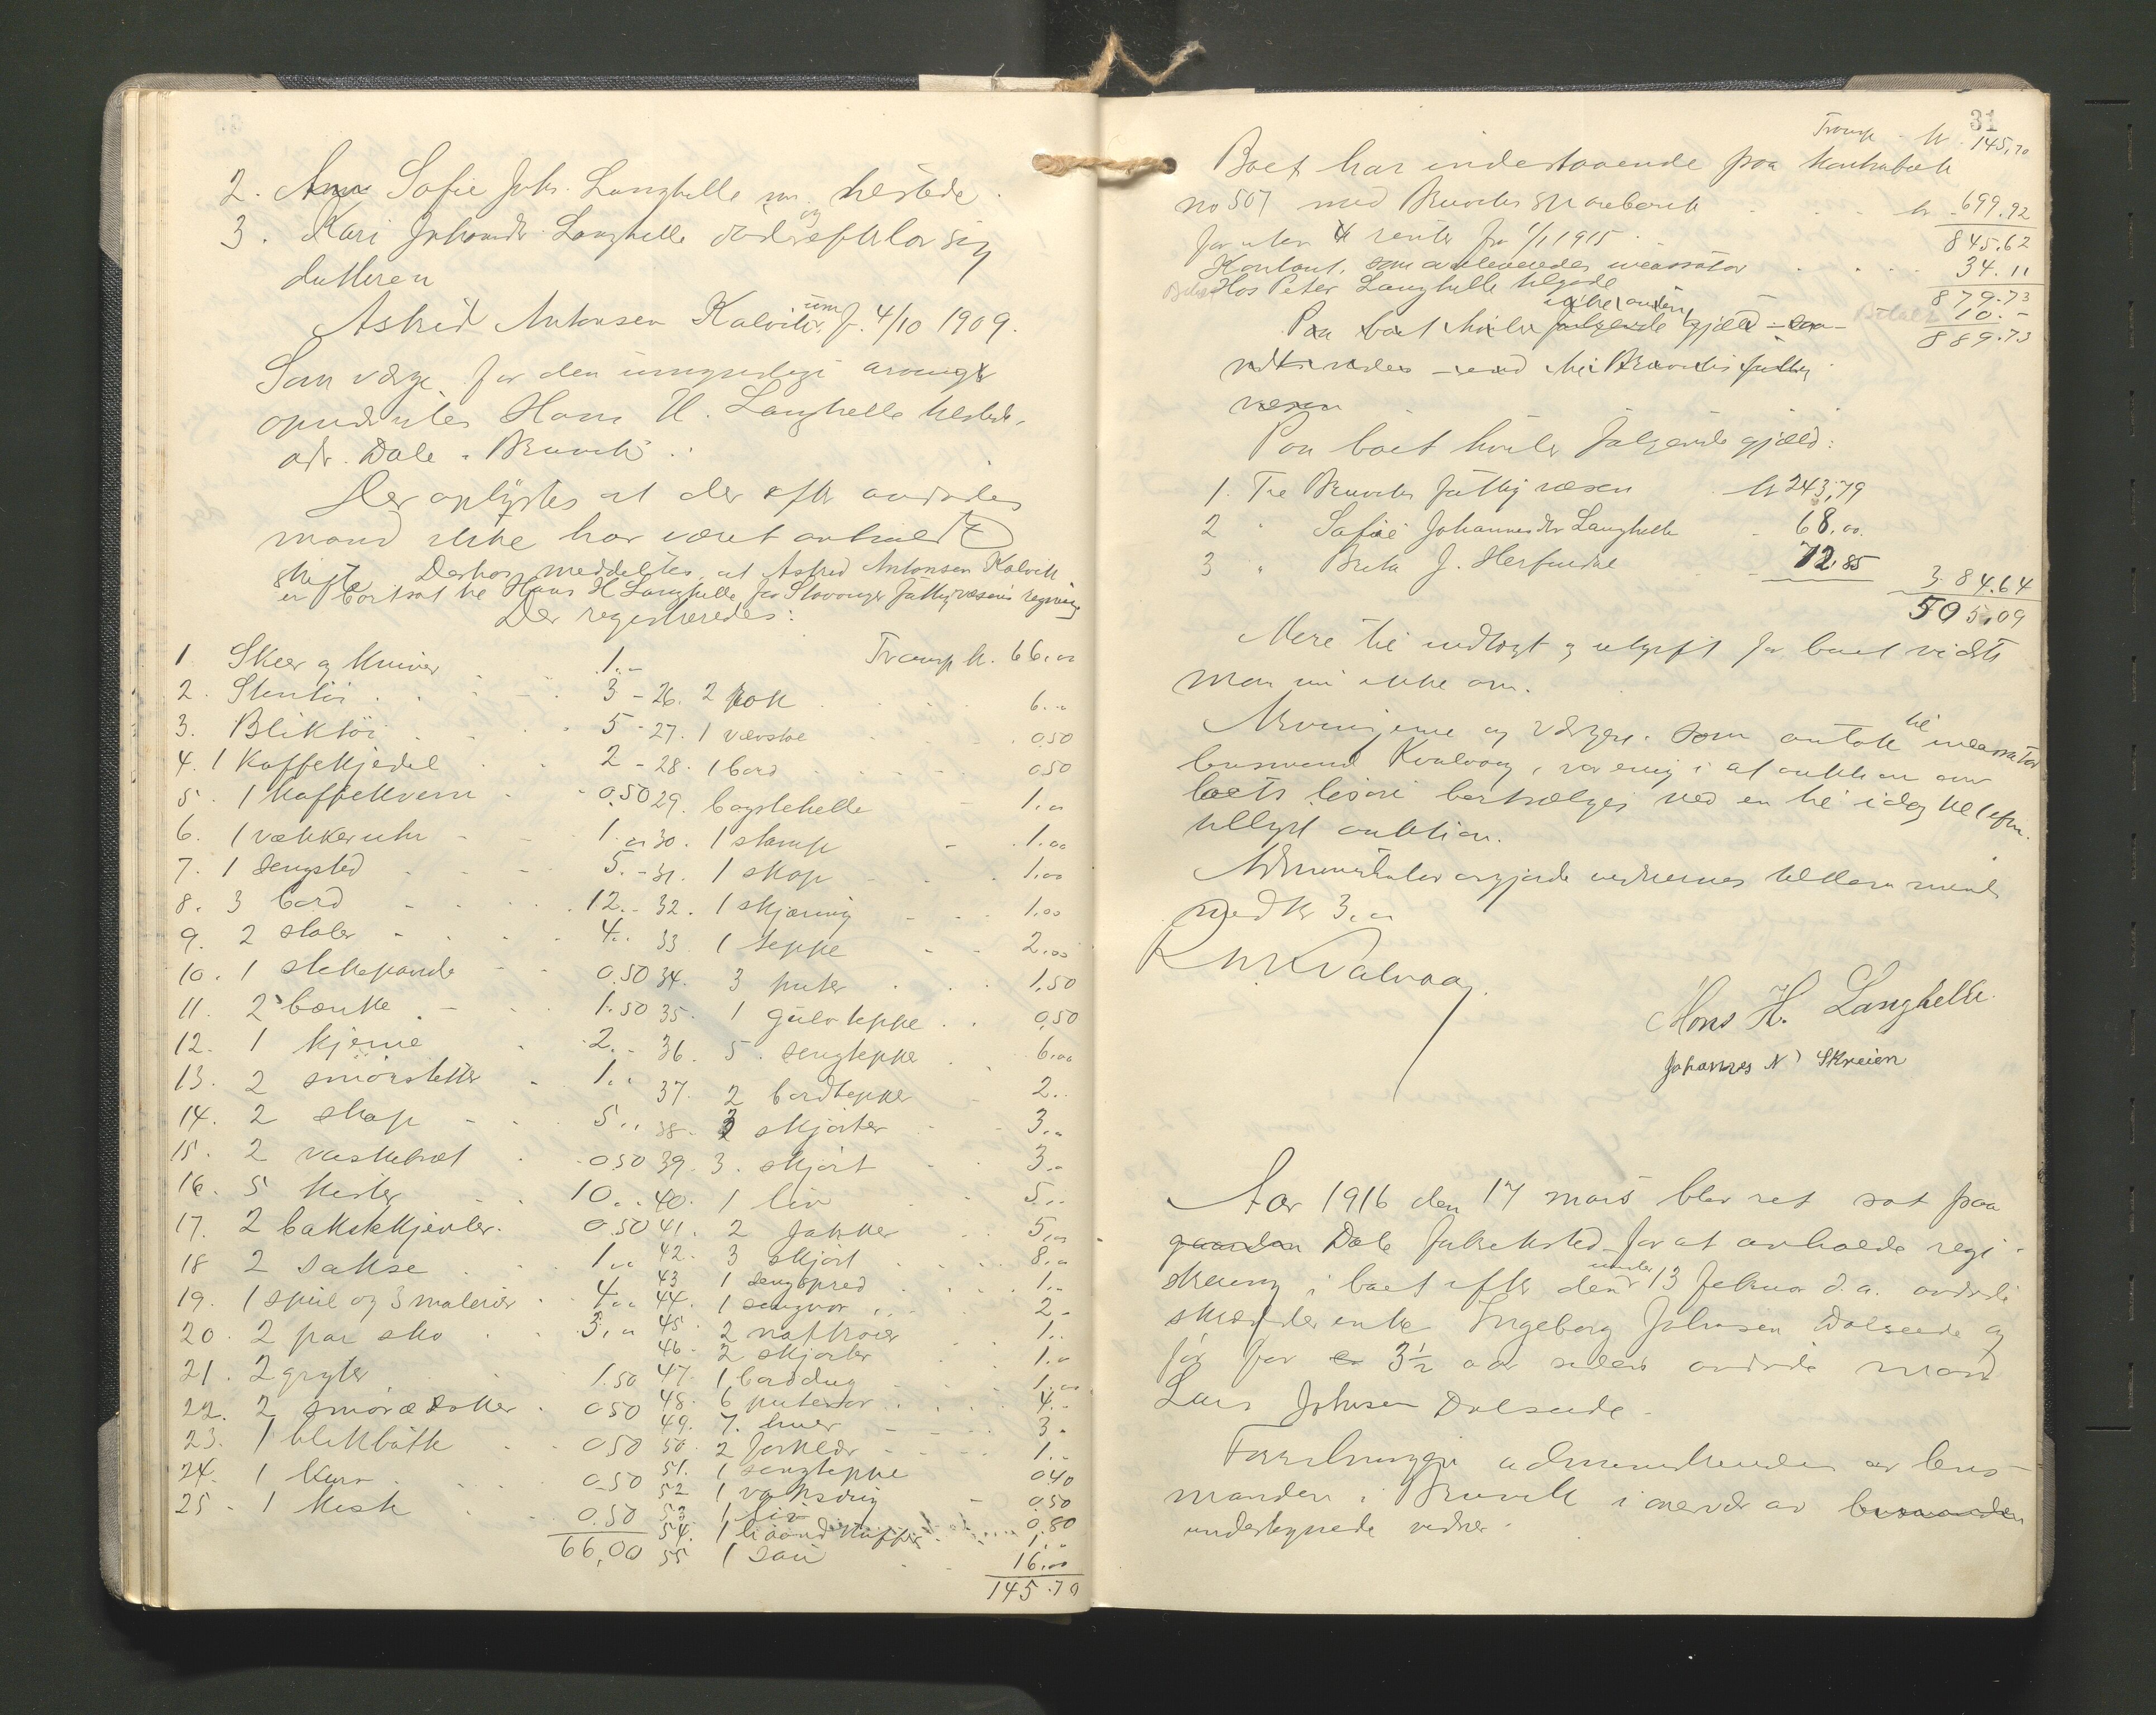 2. Sofie Johs. Langhelle hersteds.
3. Kari Johannesdr. Langhelle död og efterlot sig
datteren
Astrid Antonsen Kalvik um. f. 4/10 1909.
Som værge for den umyndige arving
opnævntes Hans H. Langhelle hersteds,
adr. Dale - Bruvik.
Der oplystes at der efter avdödes
mand ikke har været avholdt
skifte. Derhos meddeltes, at Astrid Antonsen Kalvik
er bortsat til Hans H Langhelle for Stavanger fattigvæsens regning
Der registreredes:
1 Skeer og kniver 1.-
2. Stentöi 3 -
3. Bliktöi 5 -
4. 1 Kaffekjedel 2 -
5. 1 kaffekvern 0.50
6. 1 vækkeruhr 1.00
7. 1 sengsted 5.-
8. 3 bord 12..
9. 2 stoler 4..
10. 1 stekepande 0.50
11. 2 bænke 1.50
12. 1 kjerne 2.-
13. 2 1..
14. 2 skap 5..
15. 2 vaskebræt 0.50
16. 5 kister 10..
17. 2 bakstekjevler. 0.50
18 2 sakse 1..
19. 1 speil og 3 malerier 4..
20. 2 par sko 3,00
21. 2 gryter 1.50
22. 2 smöræsker 0.50
23. 1 blikbötte 0.50
24. 1 kurv 0.50
25 - 1 kiste 0.50
66,00
Transp kr. 66.00
26. 2 rok 6..
27. 1 0.50
28. 1 bord 0.50
29. bagstehelle 1.00
30. 1 stamp 1.00
31. 1 skap 1.00
32. 1 skjæring 1.00
33 1 teppe 2.00
34. 3 puter 1.50
35. 1 gulvteppe 0.50
36. 5. sengtepper 6.00
37. 2 bordtepper 2..
38. 3 skjorter 3..
39. 3. skjört 3..
40. 1 liv 5..
41. 2 jakker 5,00
42. 3 skjört 8..
43 1 sengspred 1..
44. 1 sengvar 2-
45 2 nattröier 1..
46. 2 skjorter 1..
47. 1 borddug 1.00
48. 6 putevar 4..
49. 7. huer 3-
50. 2 forklær 1..
51. 1 sengteppe 0.40
52 1 voksdug 0.50
53. 1 liv 0.80
54. 1 1..
55 1 sau 16.00
145.70
31
Transp kr 145,70
Boet har indestaaende paa kontrabok
no 507 med Bruviks sparebank kr 699.92
for uten renter fra 1/1 1915. 845.62
Kontant, som avleveredes incassator 34.11
Hos Peter Langhelle tilgode 879.73
10.-
Paa boet hviler følgende gjæld 889.73
til Bruviks fattig
væsen
Paa boet hviler følgende gjæld:
1. Til Bruviks fattigvæsen kr 243,79
2 " Sofie Johannesdr Langhelle 68.00
3 " Brita J. Herfindal 72.85
384.64
505,09
Mere til indtægt og utgift for boet vidste
man nu ikke om.
Arvingerne og værgen, som antok til incassator
lensmand Kvalvaag, var enig i at
boets lösöre bortsælges ved en til idag kl 1 efm.
tillyst auktion.
Administrator avgjorde vidnernes tilkommende
med kr 3.00
Kvalvaag.
Mons H. Langhelle.
Johannes N Skreien
Aar 1916 den 17 mars blev ret sat paa
gaarden Dale Fabriksted for at avholde regi-
strering i boet efter den under 13 februar d.a. avdöde
skrædderenke Ingeborg Johnsen Dalseide og
før for 3½ aar siden avdøde mand
Lars Johnsen Dalseide.
Forretningen administreredes av lens-
manden i Bruvik i nærvær av lensmanden
undertegnede vidner.